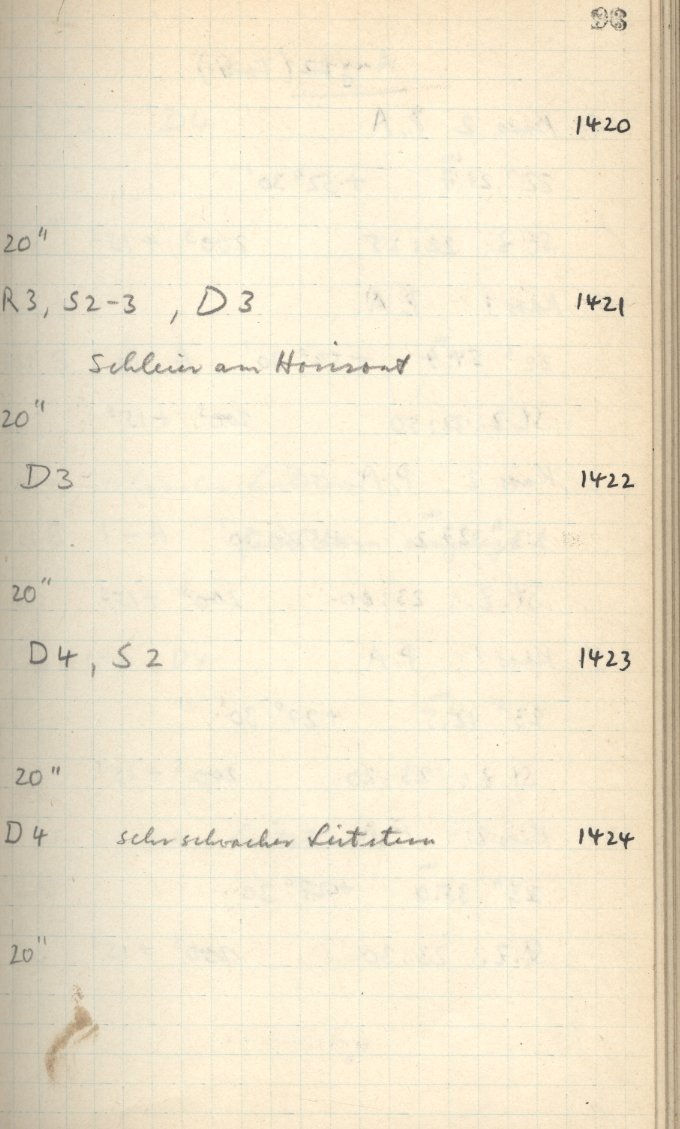 96
1420
20"
R3, S2-3 , D3 1421
Schleier am Horizont
20"
D3 1422
20"
D4, S2 1423
20"
D4 sehr schwacher Leitstern 1424
20"